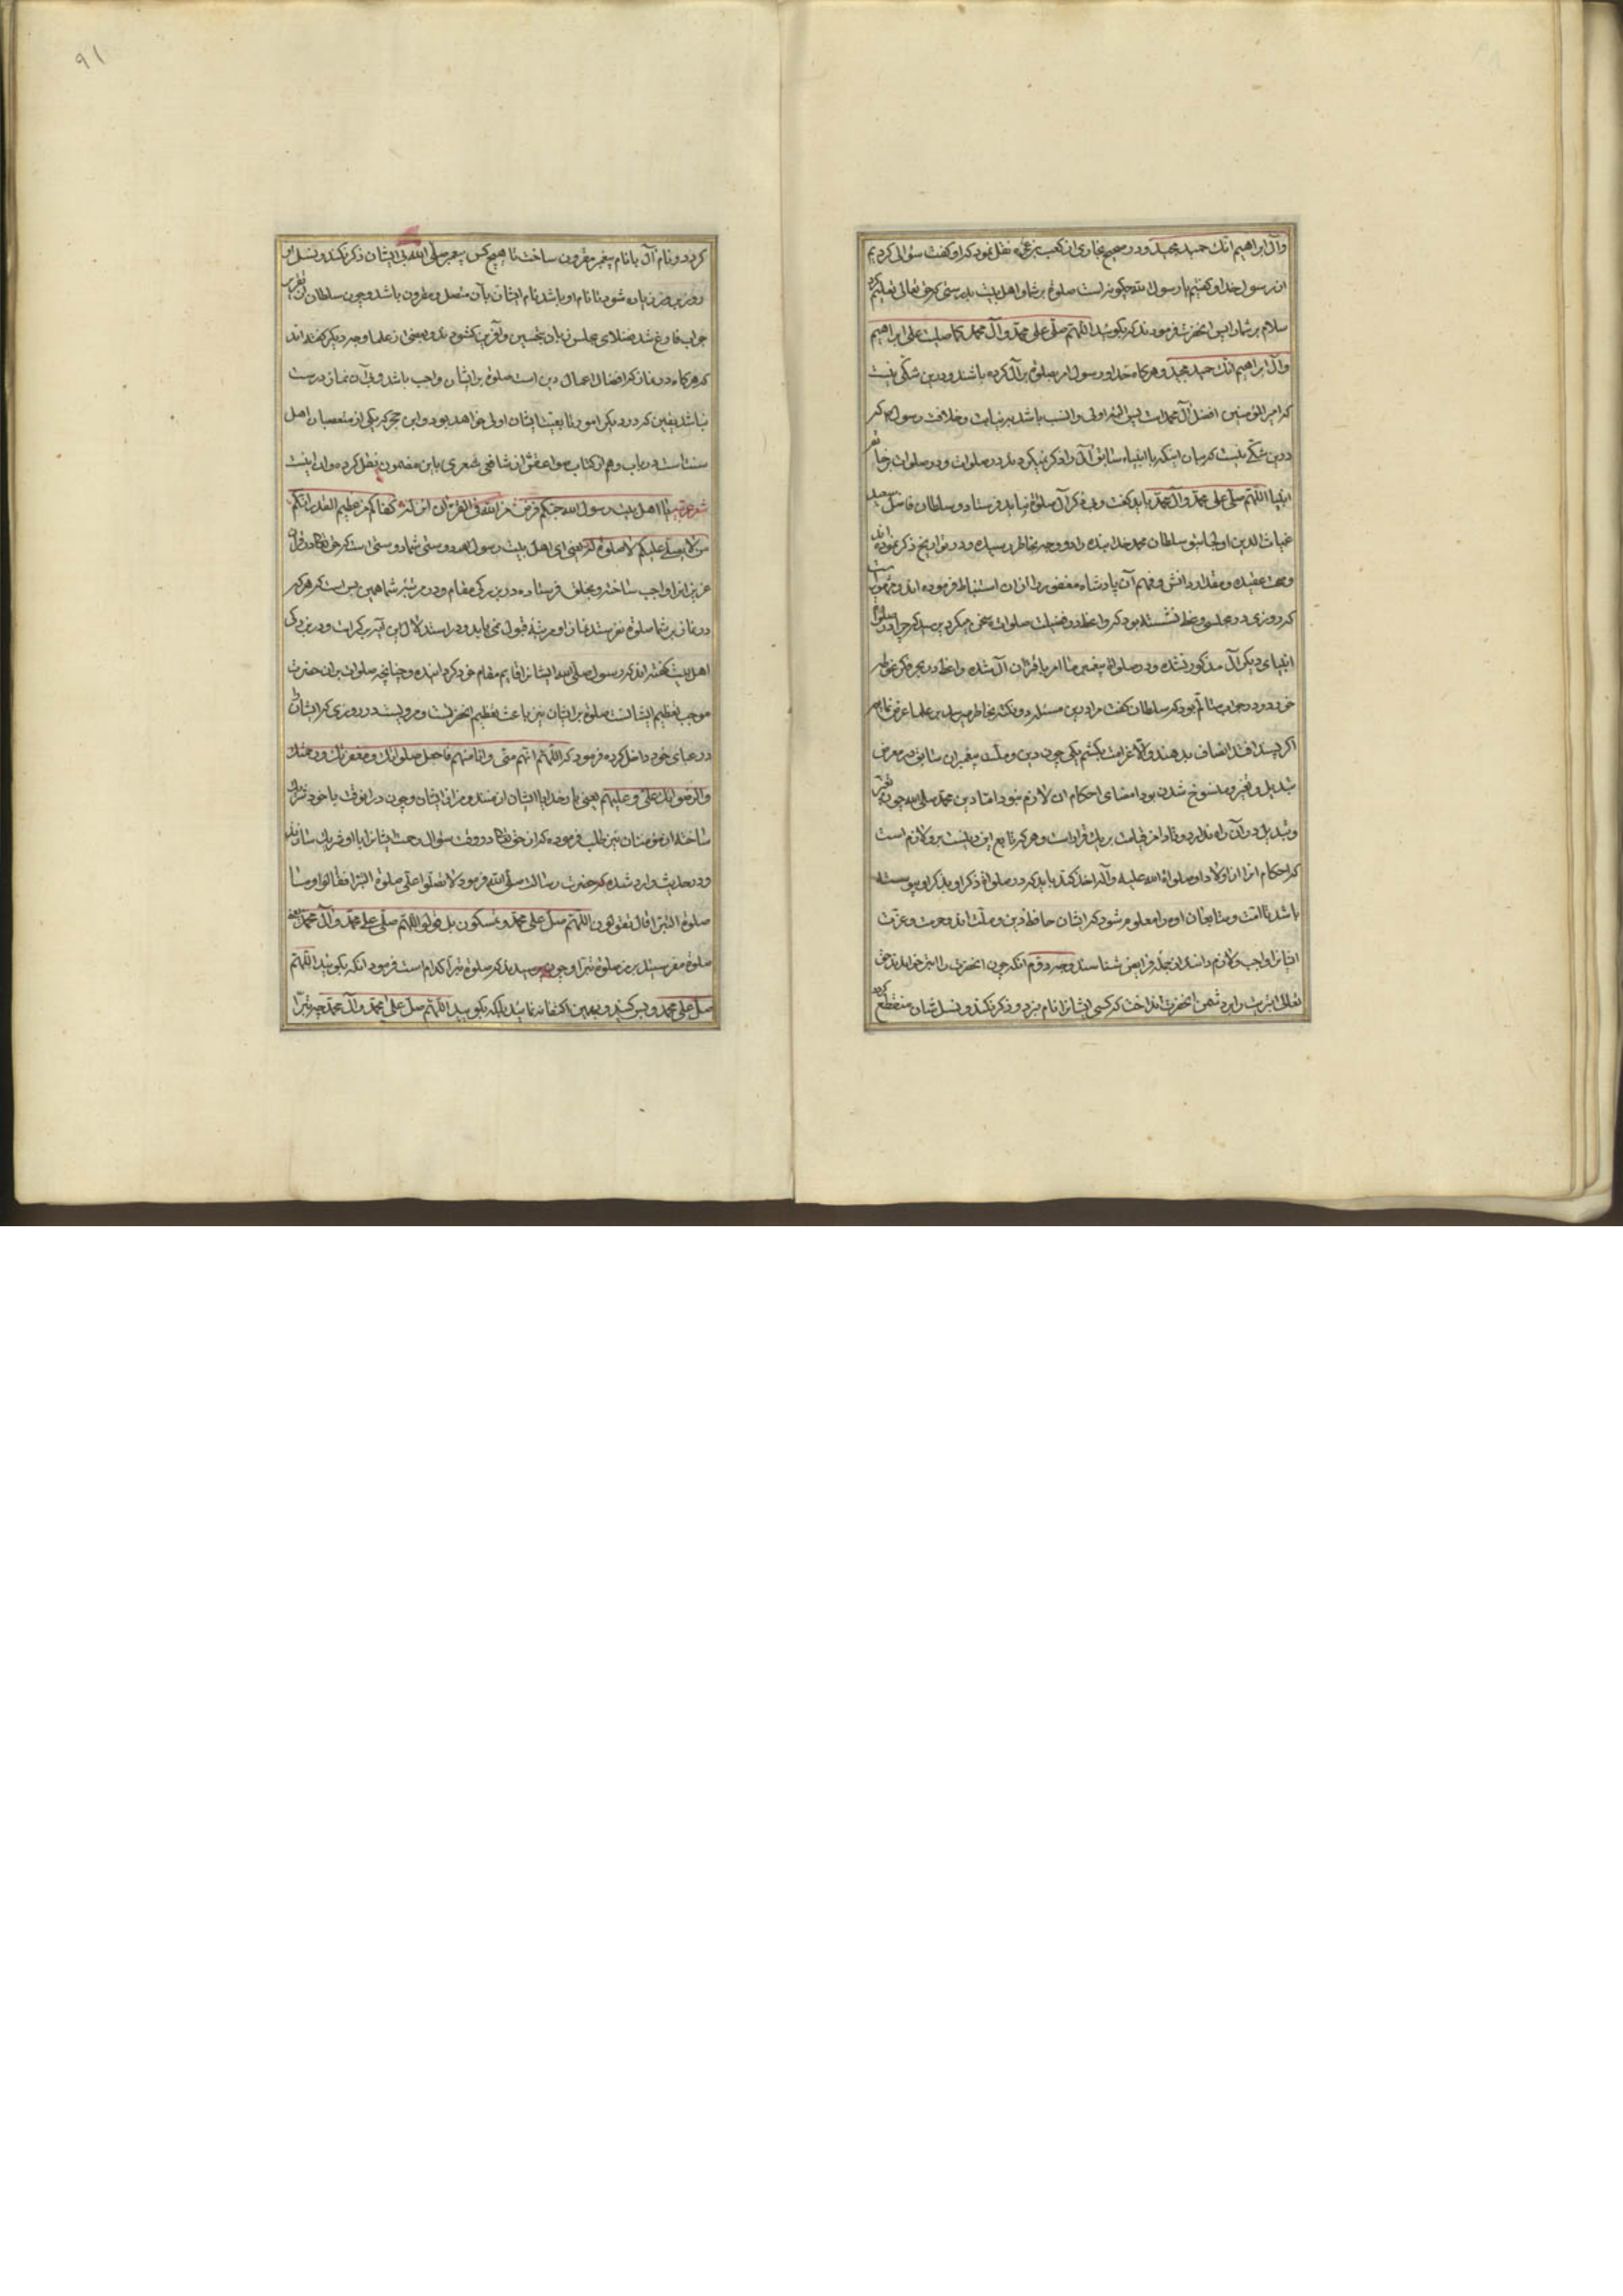 وآل ابراهیم انک حمید مجید ودر صحیح بخاری از کعب بن عجره نقل نموده که او کفت سؤال کردیم
از رسول خدا و کفتیم یا رسول الله چکونه است صلوة بر شما و اهل بیت بدرستی که حق تعالی تعلیم کرد
سلام بر شما را پس انحضرت فرمودند که بکوئید اللهم صلی علی محمد وآل محمد کما صلیت علی ابراهیم
وآل ابراهیم انک حمید مجید وهرکاه خدا ورسول امر بصلوة بر آل کرده باشند ودرین شکی نیست
که امیر المؤمنین افضل آل محمد است پس البته اولی وانسب باشد بر نیابت وخلافت رسول که
درین شکی نیست که میان اینکه با انبیاء سابق آل را ذکر نمیکردند در صلوات ودر صلوات خاتم
انبیا اللهم صلی علی محمد وآل محمد باید کفت وبی ذکر آل صلوة نباید فرستاد وسلطان فاضل سعید
غیاث الدین اولجایتو سلطان محمد خدابنده را دو وجه بخاطر رسیده ودر تواریخ ذکر نموده‌اند
وصحت عقیده ومقدار دانش وفهم آن پادشاه مغفور را از ان استنباط فرموده اند
که روزی در مجلس وعظ نشسته بود که واعظ در فضیلت صلوات سخن میکرد پرسید که چرا در صلوة
انبیای دیکر آل مذکور نشده ودر صلوة پیغمبر ما امر باقتران آل شده واعظ در بحر فکر غوطه
خورد ودر جواب متألم بود که سلطان کفت مرا درین مسئله دو نکته بخاطر میرسد بر علما عرض نمایم
اکر پسند افتد انصاف بدهند والا غرامت بکشم یکی چون دین وملت پیغمبران سابق در معرض
تبدیل وتغیر ومنسوخ شدن بود امضای احکام ان لازم نبود اما دین محمد صلی الله چون تغیر
وتبدیل در آن راه ندارد وتا دامن قیامت بر یک قرار است وهر که تابع این دینست برو لازم است
که احکام انرا از اولاد او صلواة الله علیه وآله اخذ کند باید که در صلواة ذکر او بذکر او پیوسته
باشد تا امت ومتابعان او را معلوم شود که ایشان حافظ دین وملت اند وحرمت وعزت
ایشانرا واجب ولازم دانند از جمله فرایض شناسند وجه دوم انکه چون انحضرت را ابتر خواندند حق
تعالی ابتریت را بر دشمن انحضرت انداخت که کسی ایشانرا نام نبرد وذکر نکند ونسل شان منقطع کردد
کردد ونام آل با نام پیغمبر مقرون ساخت تا هیچ کس پیغمبر صلی الله بی ایشان ذکر نکند ونسل او
روز بروز زیاده شود تا نام او باشد نام ایشان بآن متصل ومقرون باشد وچون سلطان از تقریر
جواب فارغ شد فضلای مجلس زبان بتحسین وآفرین کشودند وبعضی از علما وجه دیکر کفته اند
که هرکاه در نماز که افضل اعمال دین است صلوة بر ایشان واجب باشد وبی آن نماز درست
نباشد یقین که در دیکر امور متابعت ایشان اولی خواهد بود وابن حجر که یکی از متعصبان اهل
سنت است در باب دهم از کتاب صواعق از شافعی شعری باین مضمون نقل کرده وان اینست
شعر عربیه یا اهل بیت رسول الله حبکم فرض من الله فی القرآن انزله کفاکم من عظیم القدر انکم
من لا یصلی علیکم لا صلوة له یعنی ای اهل بیت رسول الله دوستی شما دوستی است که حق تعالی در قرآن
عزیز انرا واجب ساخته وبخلق فرستاده در بزرکی مقام ودر مرتبه شما همین بس است که هر که
در نماز بر شما صلوة نفرستد نماز او مرتبه قبول نمی یابد
اهل بیت کفته اند که رسول صلی الله ایشانرا قایم مقام خود کردانیده وچنانچه صلوات بران حضرت
موجب تعظیم ایشانست صلوة بر ایشان نیز باعث تعظیم انحضرتست ومرویست در روزی که ایشان را
در عبای خود داخل کرده فرمود که اللهم انهم منی وانا منهم فاجعل صلواتک ومغفرتک ورحمتک
والرضوانک علی وعلیهم یعنی بار خدایا ایشان از منند ومن از ایشان وچون در انوقت با خود شریک
ساخته از مؤمنان نیز طلب فرموده که از حق تعالی در وقت سؤال رحمت ایشانرا با او شریک سازند
ودر حدیث وارد شده که حضرت رسالت صلی الله فرمود لا تصلوا علی صلوة البترا فقالوا وما
صلوة البترا قال تقولون اللهم صل علی محمد وتمسکون بل قولوا اللهم صلی علی محمد وآل محمد یعنی
صلوة مفرستید بر من صلوة بترا وچون پرسیدند که صلوة بترا کدام است فرمود انکه بکوئید اللهم
صل علی محمد وبس کنید وبهمین اکتفا نمائید بلکه بکویید اللهم صل علی محمد وآل محمد
۹۱